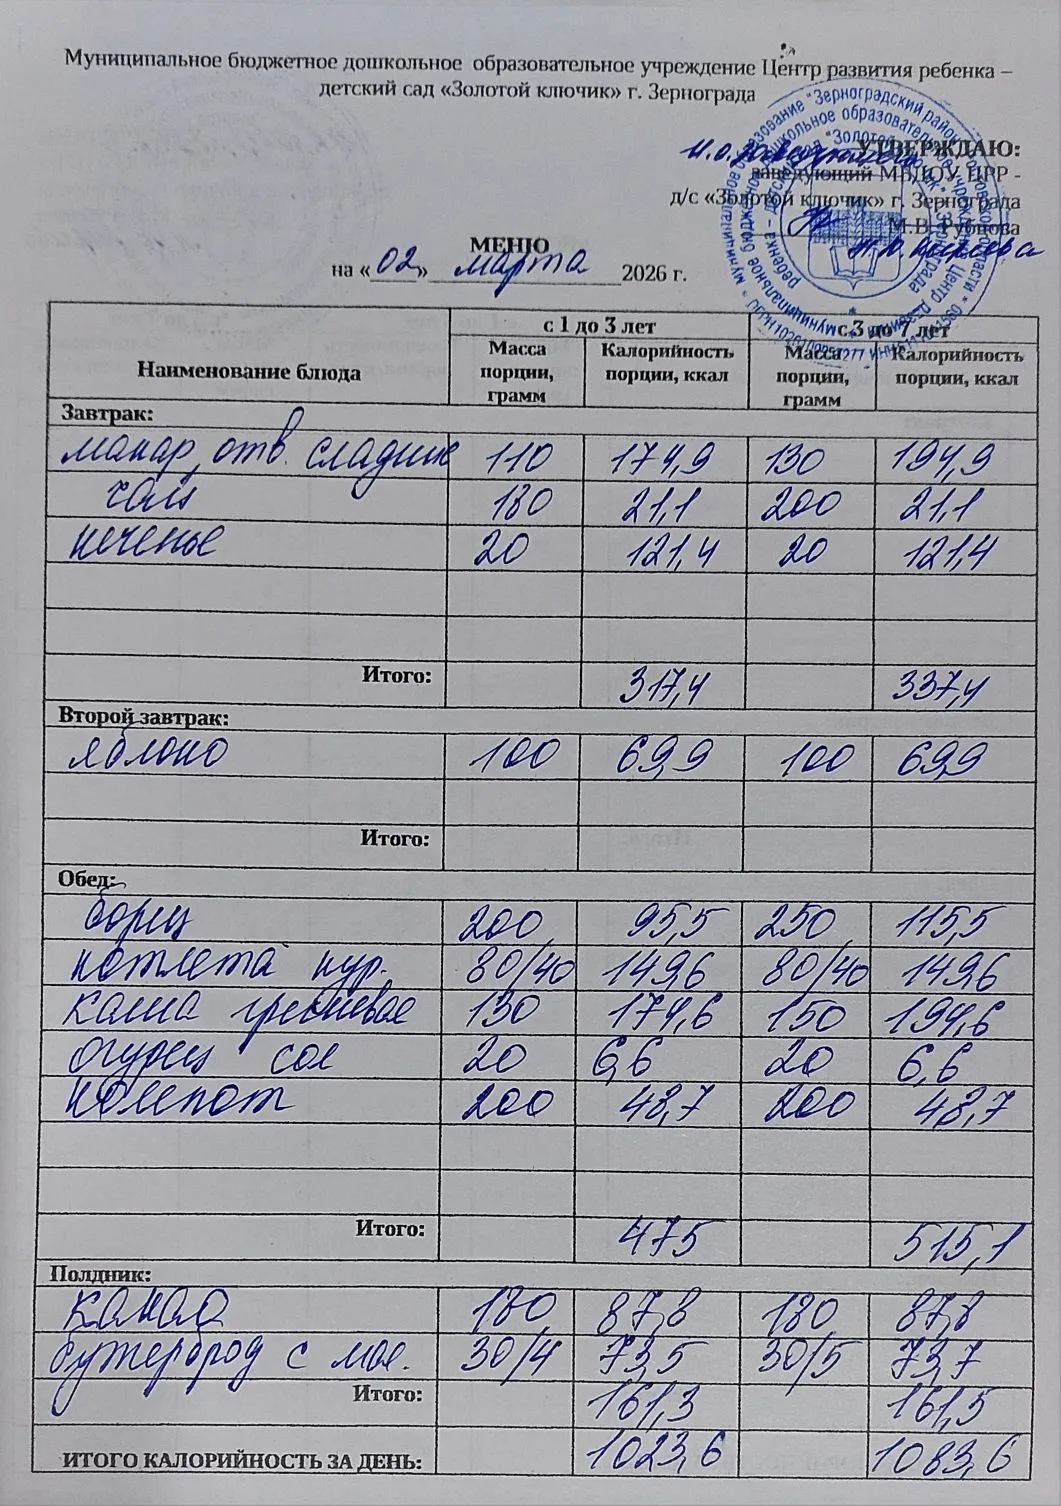 Муниципальное бюджетное дошкольное образовательное учреждение Центр развития ребенка –
детский сад «Золотой ключик» г. Зернограда
УТВЕРЖДАЮ:
И.о. заведующего
заведующий МБДОУ ЦРР -
д/с «Золотой ключик» г. Зернограда
М.В. Рубцова
МЕНЮ
на « 02 » марта 2026 г.
Наименование блюда с 1 до 3 лет с 3 до 7 лет
Масса порции, грамм Калорийность порции, ккал Масса порции, грамм Калорийность порции, ккал
Завтрак:
макар. отв. сладкие 110 174,9 130 194,9
чай 180 21,1 200 21,1
печенье 20 121,4 20 121,4
Итого: 317,4 337,4
Второй завтрак:
яблоко 100 69,9 100 69,9
Итого:
Обед:
борщ 200 95,5 250 115,5
котлета кур. 80/40 149,6 80/40 149,6
каша гречневая 130 174,6 150 194,6
огурец сол 20 6,6 20 6,6
компот 200 48,7 200 48,7
Итого: 475 515,1
Полдник:
какао 180 87,8 180 87,8
бутерброд с мас. 30/4 73,5 30/5 73,7
Итого: 161,3 161,5
ИТОГО КАЛОРИЙНОСТЬ ЗА ДЕНЬ: 1023,6 1083,6